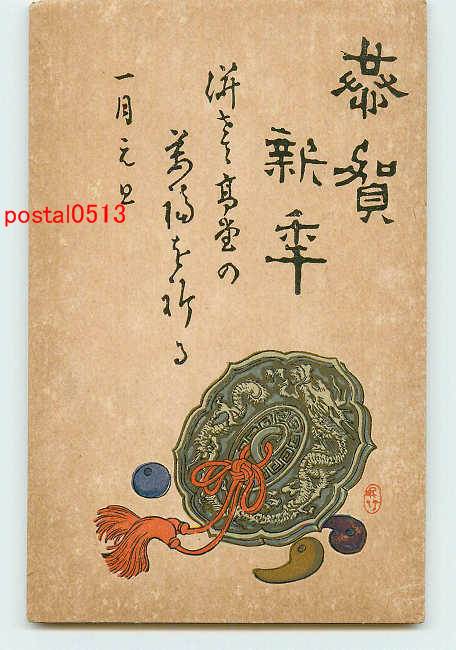 恭賀
新年
併せて高堂の
萬福を祈る
一月元旦
postal0513